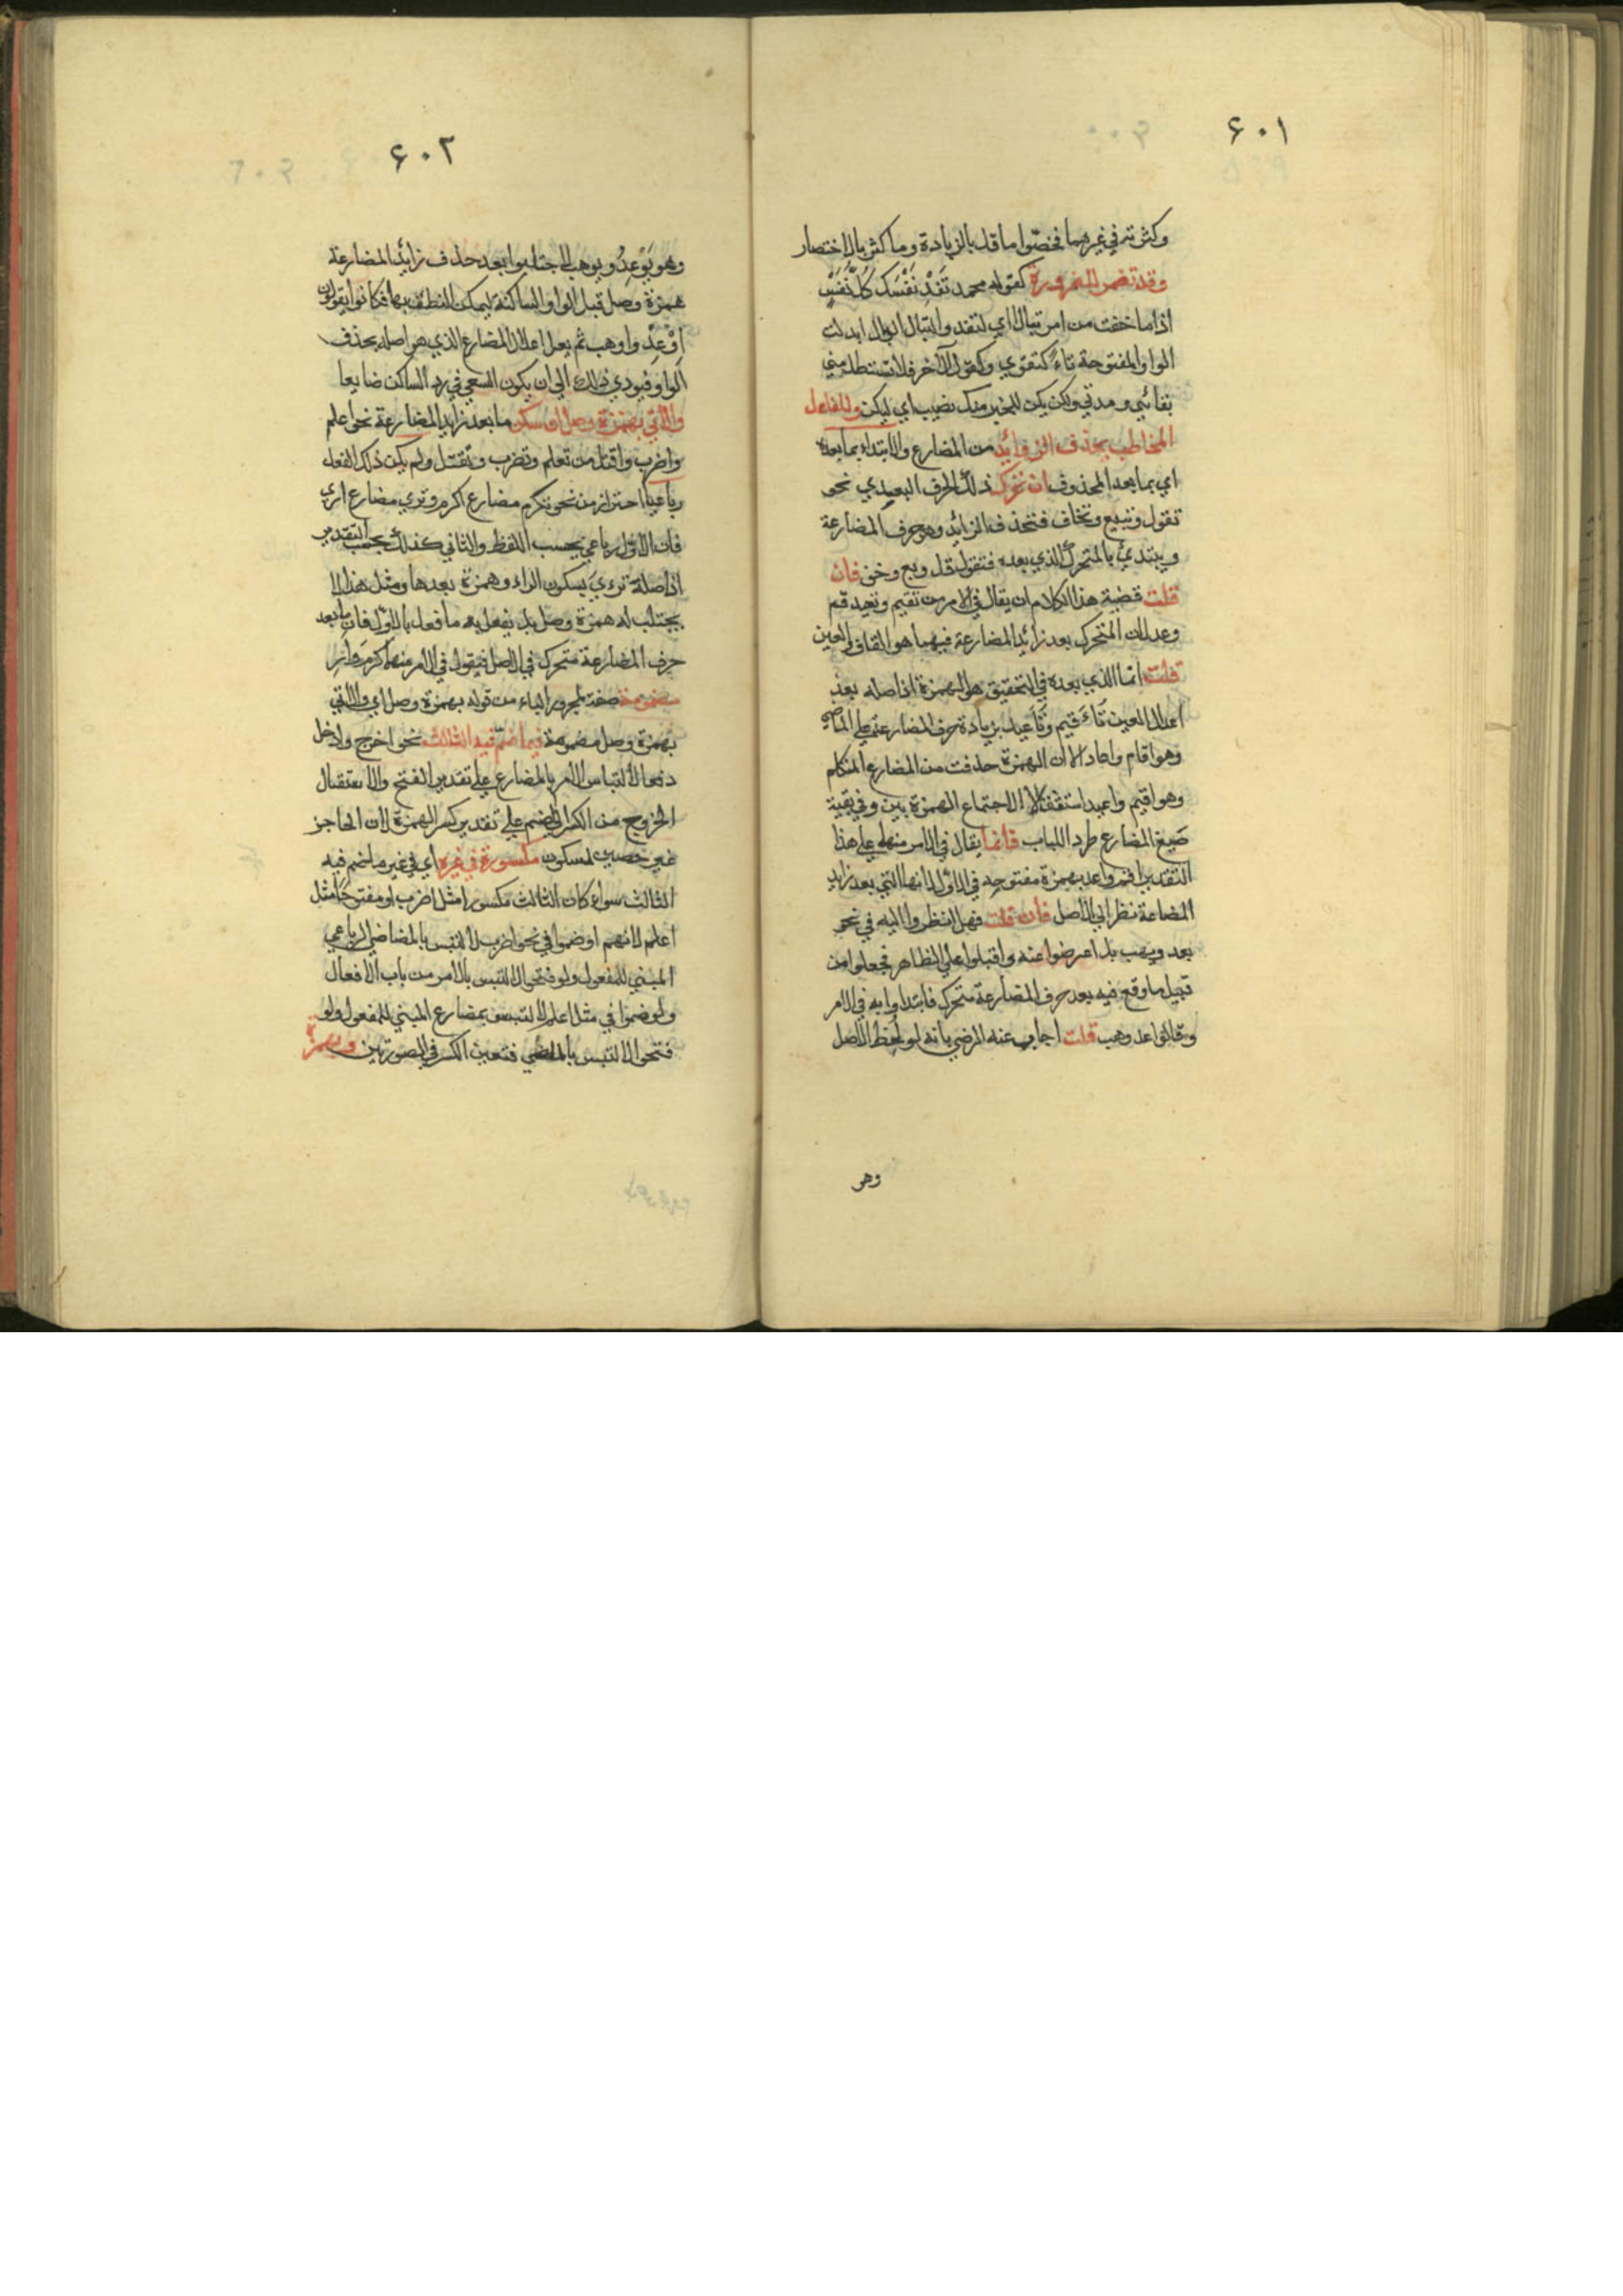 ٤٠١
وكثرته في غيرهما فخصّوا ما قل بالزيادة وما كثر بالاختصار
وقد تضمر للضرورة كقوله محمد تَفْدِ نَفْسَك كُلُّ نَفْسٍ
اذا ما خفت من امر تبالا اي لتفد والتبال الوبال ابدلت
الواو المفتوحة تاءً كتقوي وكقول الآخر فلا تستطل مني
بقائي ومدتي ولكن يكن للخير منك نصيب اي ليكن وللفاعل
المخاطب بحذف الزوائد من المضارع والابتداء بما بعده
اي بما بعد المحذوف ان تحرك ذلك الحرف البعدي نحو
تقول وتبيع وتخاف فتحذف الزائد وهو حرف المضارعة
ويبتدئ بالمتحرك الذي بعده فتقول قل وبع وخف فان
قلت قضية هذا الكلام ان يقال في الامر من تقيم وتعيد قم
وعد لان المتحرك بعد زائد المضارعة فيهما هو القاف والعين
قلت انما الذي بعده في التحقيق هو الهمزة اذ اصله بعد
اعلال العين تَأَقيم وتَأَعيد بزيادة حرف المضارعة على الماضي
وهو اقام واعاد الا ان الهمزة حذفت من المضارع المتكلم
وهو اقيم واعيد استثقالا لاجتماع الهمزتين وفي بقية
صيغ المضارع طرد اللباب فانما يقال في الامر منهما على هذا
التقدير اقم واعد بهمزة مفتوحة في الاول لانها التي بعد زايد
المضاعة نظر الي الاصل فان قلت فهل انظروا اليه في نحو
يعد ويهب بل اعرضوا عنه واقبلوا علي الظاهر فجعلوا من
قبيل ما وقع فيه بعد حرف المضارعة متحرك فابتداوا به في الامر
وقالوا عد وهب قلت اجاب عنه الرضي بانه لو لحظ الاصل
وهو
٤٠٢
وهو يَوْعِدُ ويوهب لاجتلبوا بعد حذف زائد المضارعة
همزة وصل قبل الواو الساكنة ليمكن النطق بها فكانوا يقولون
اِوْعِدْ واوهب ثم يعل اعلال المضارع الذي هو اصله بحذف
الواو فيودي ذلك الي ان يكون السعي في رد الساكن ضايعا
والاتي بهمزة وصل ان سكن ما بعد زايد المضارعة نحو اعلم
واضرب واقتل من تعلم وتضرب وتقتل ولم يكن ذلك الفعل
رباعيا احتراز من نحو تكرم مضارع اكرم وتري مضارع اري
فان الاول رباعي بحسب اللفظ والثاني كذلك بحسب التقدير
اذ اصله ترءي بسكون الراء وهمزة بعدها ومثل هذا لا
يجتلب له همزة وصل بل يفعل به ما فعل بالاول فان ما بعد
حرف المضارعة متحرك في الاصل فيقول في الامر منهما اكرم وار
مضمومة صفة لمجرور الباء من قوله بهمزة وصل اي والاتي
بهمزة وصل مضمومة فيما ضم فيه الثالث نحو اخرج وادخل
دفعا لالتباس الامر بالمضارع علي تقدير الفتح والاستثقال
الخروج من الكسر الي الضم علي تقدير كسر الهمزة لان الحاجز
غير حصين لسكون مكسورة في غيره اي في غير ما ضم فيه
الثالث سواء كان الثالث مكسورا مثل اضرب او مفتوحا مثل
اعلم لانهم لو ضموا في نحو اضرب لالتبس بالمضاضي الرباعي
المبني للمفعول ولو فتحوا لالتبس بالامر من باب الافعال
ولو ضموا في مثل اعلم لالتبس بمضارع المبني للمفعول ولو
فتحوا لالتبس بالماضي فتعين الكسر في الصورتين وبهمزة